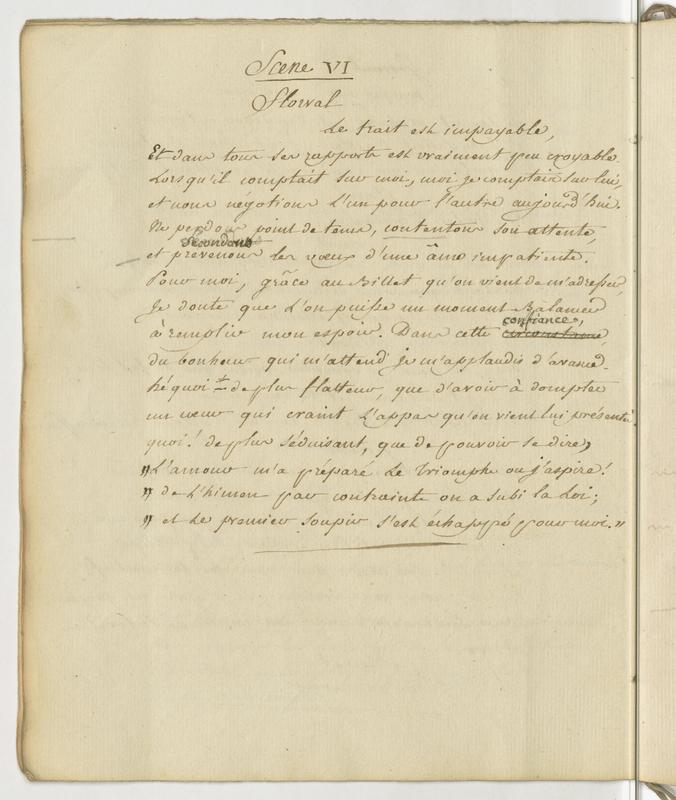 Scene VI
Florval
Le trait est impayable,
Et dans tous ses rapports est vraiment peu croyable.
Lorsqu'il comptait sur moi, moi je comptais sur lui,
et nous négotions l'un pour l'autre aujourd'hui.
Ne perdons point de tems, contentons son attente,
Secondons
et prévenons les vœux d'une âme impatiente.
Pour moi, grâce au Billet qu'on vient de m'adresser,
Je doute que l'on puisse un moment Balancer
confiance,
à remplir mon espoir. Dans cette circonstance,
du bonheur qui m'attend je m'applaudis d'avance.
hé quoi de plus flatteur, que d'avoir à dompter
un cœur qui craint l'appas qu'on vient lui présenter
quoi! de plus séduisant, que de pouvoir se dire,
"L'amour m'a préparé le Triomphe ou j'aspire!
" de l'himen par contrainte on a subi la loi;
" et le premier soupir s'est échappé pour moi."